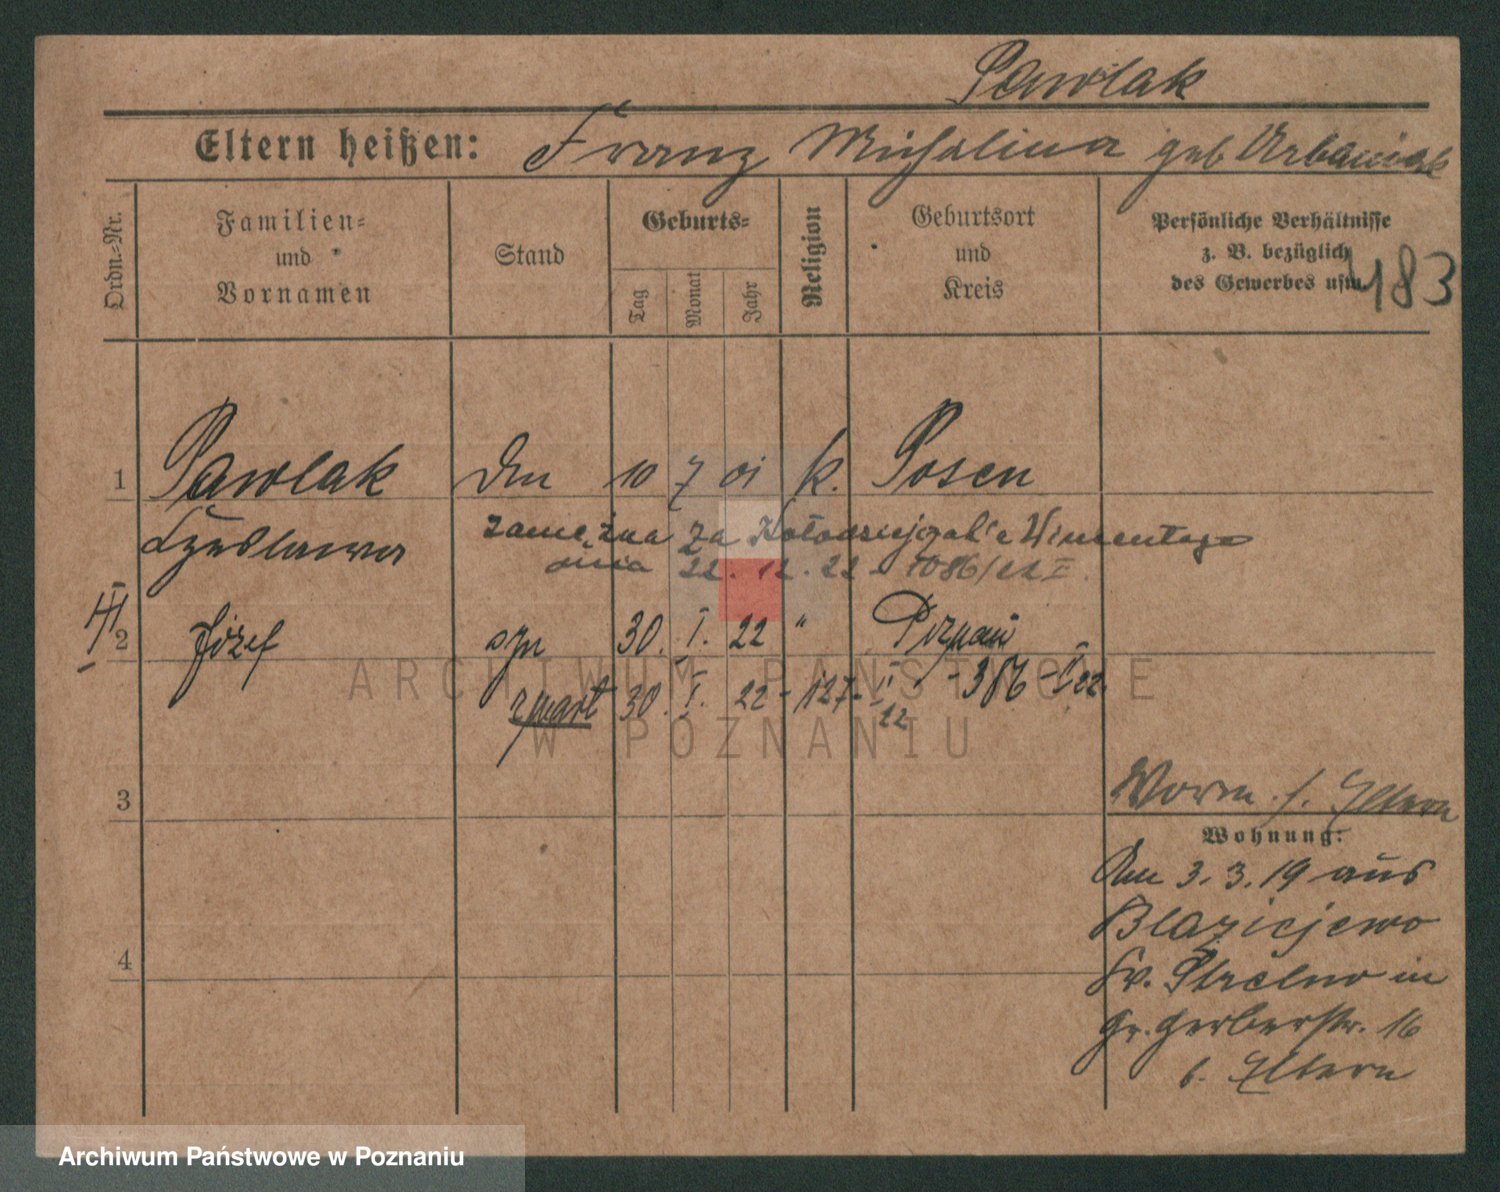 Pawlak
Eltern heißen: Franz Michalina geb Urbaniak
Ordn.-Nr.
Familien-
und
Vornamen
Stand
Geburts-
Tag
Monat
Jahr
Religion
Geburtsort
und
Kreis
Persönliche Verhältnisse
z. B. bezüglich
des Gewerbes usw.
483
1 Pawlak 10 7 01 k. Posen
Czesława
zamężna za Kołodziejczak'a Wincentego
dnia 22. 12. 22 - 1086/22 I
2 Józef syn 30. I. 22 " Poznań
zmarł 30. I. 22 - 127 - I - 386 - I 22.
22
3
Worm. s. Eltern
Wohnung:
Am 3. 3. 19 aus
Blazicjewo
Kr. Strelno in
Gr. Gerberstr. 16
b. Eltern
4
ARCHIWUM PAŃSTWOWE
W POZNANIU
Archiwum Państwowe w Poznaniu